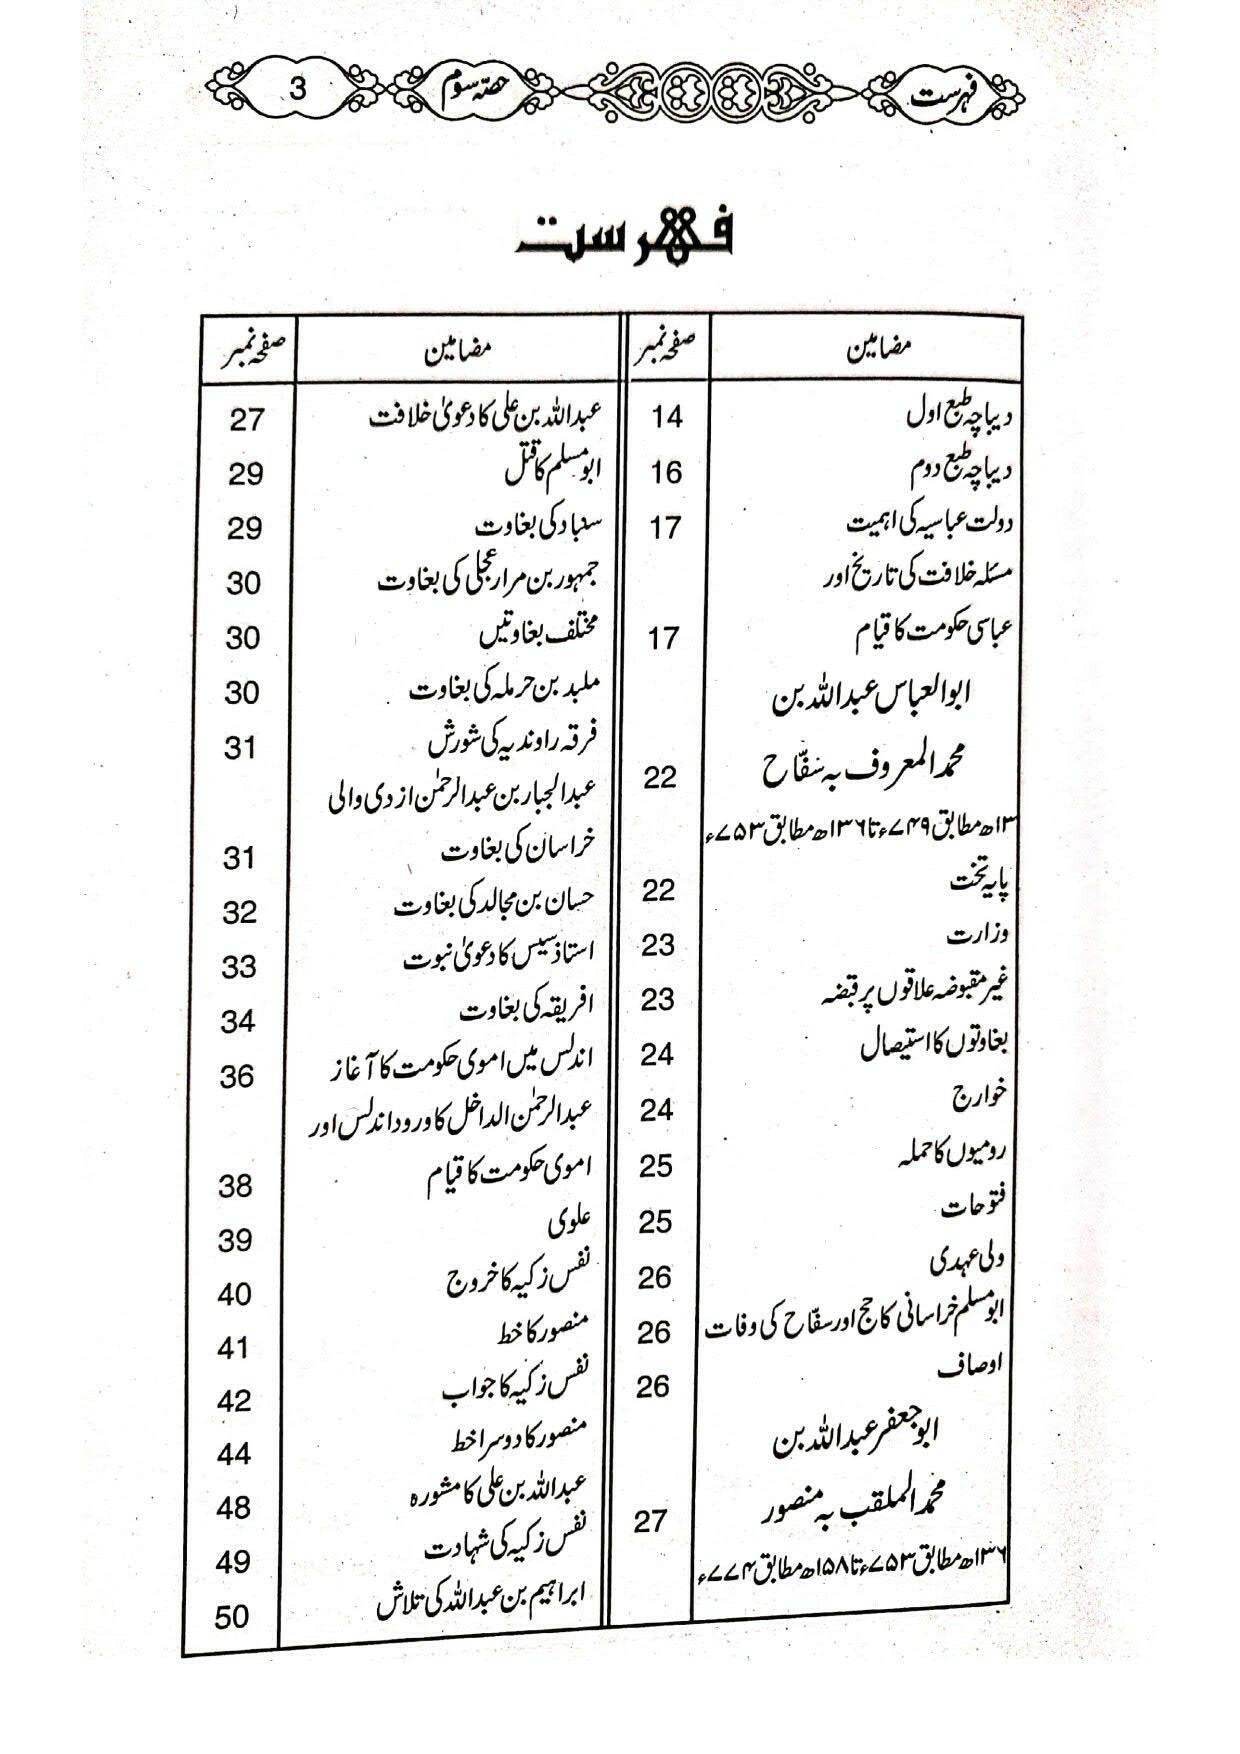 فہرست حصّہ سوم 3
فہرست
مضامین صفحہ نمبر
دیباچہ طبع اول 14
دیباچہ طبع دوم 16
دولت عباسیہ کی اہمیت 17
مسئلہ خلافت کی تاریخ اور
عباسی حکومت کا قیام 17
ابوالعباس عبداللہ بن
محمد المعروف بہ سفّاح 22
۱۳ھ مطابق ۷۴۹ء تا ۱۳۶ھ مطابق ۷۵۳ء
پایہ تخت 22
وزارت 23
غیر مقبوضہ علاقوں پر قبضہ 23
بغاوتوں کا استیصال 24
خوارج 24
رومیوں کا حملہ 25
فتوحات 25
ولی عہدی 26
ابو مسلم خراسانی کا حج اور سفّاح کی وفات 26
اوصاف 26
ابو جعفر عبداللہ بن
محمد الملقب بہ منصور 27
۱۳۶ھ مطابق ۷۵۳ء تا ۱۵۸ھ مطابق ۷۷۴ء
مضامین صفحہ نمبر
عبداللہ بن علی کا دعویٰ خلافت 27
ابو مسلم کا قتل 29
سنباد کی بغاوت 29
جمہور بن مرار عجلی کی بغاوت 30
مختلف بغاوتیں 30
ملبد بن حرملہ کی بغاوت 30
فرقہ راوندیہ کی شورش 31
عبدالجبار بن عبدالرحمٰن ازدی والی
خراسان کی بغاوت 31
حسان بن مجالد کی بغاوت 32
استاذ سیس کا دعویٰ نبوت 33
افریقہ کی بغاوت 34
اندلس میں اموی حکومت کا آغاز 36
عبدالرحمٰن الداخل کا ورود اندلس اور
اموی حکومت کا قیام 38
علوی 39
نفس زکیہ کا خروج 40
منصور کا خط 41
نفس زکیہ کا جواب 42
منصور کا دوسرا خط 44
عبداللہ بن علی کا مشورہ 48
نفس زکیہ کی شہادت 49
ابراہیم بن عبداللہ کی تلاش 50